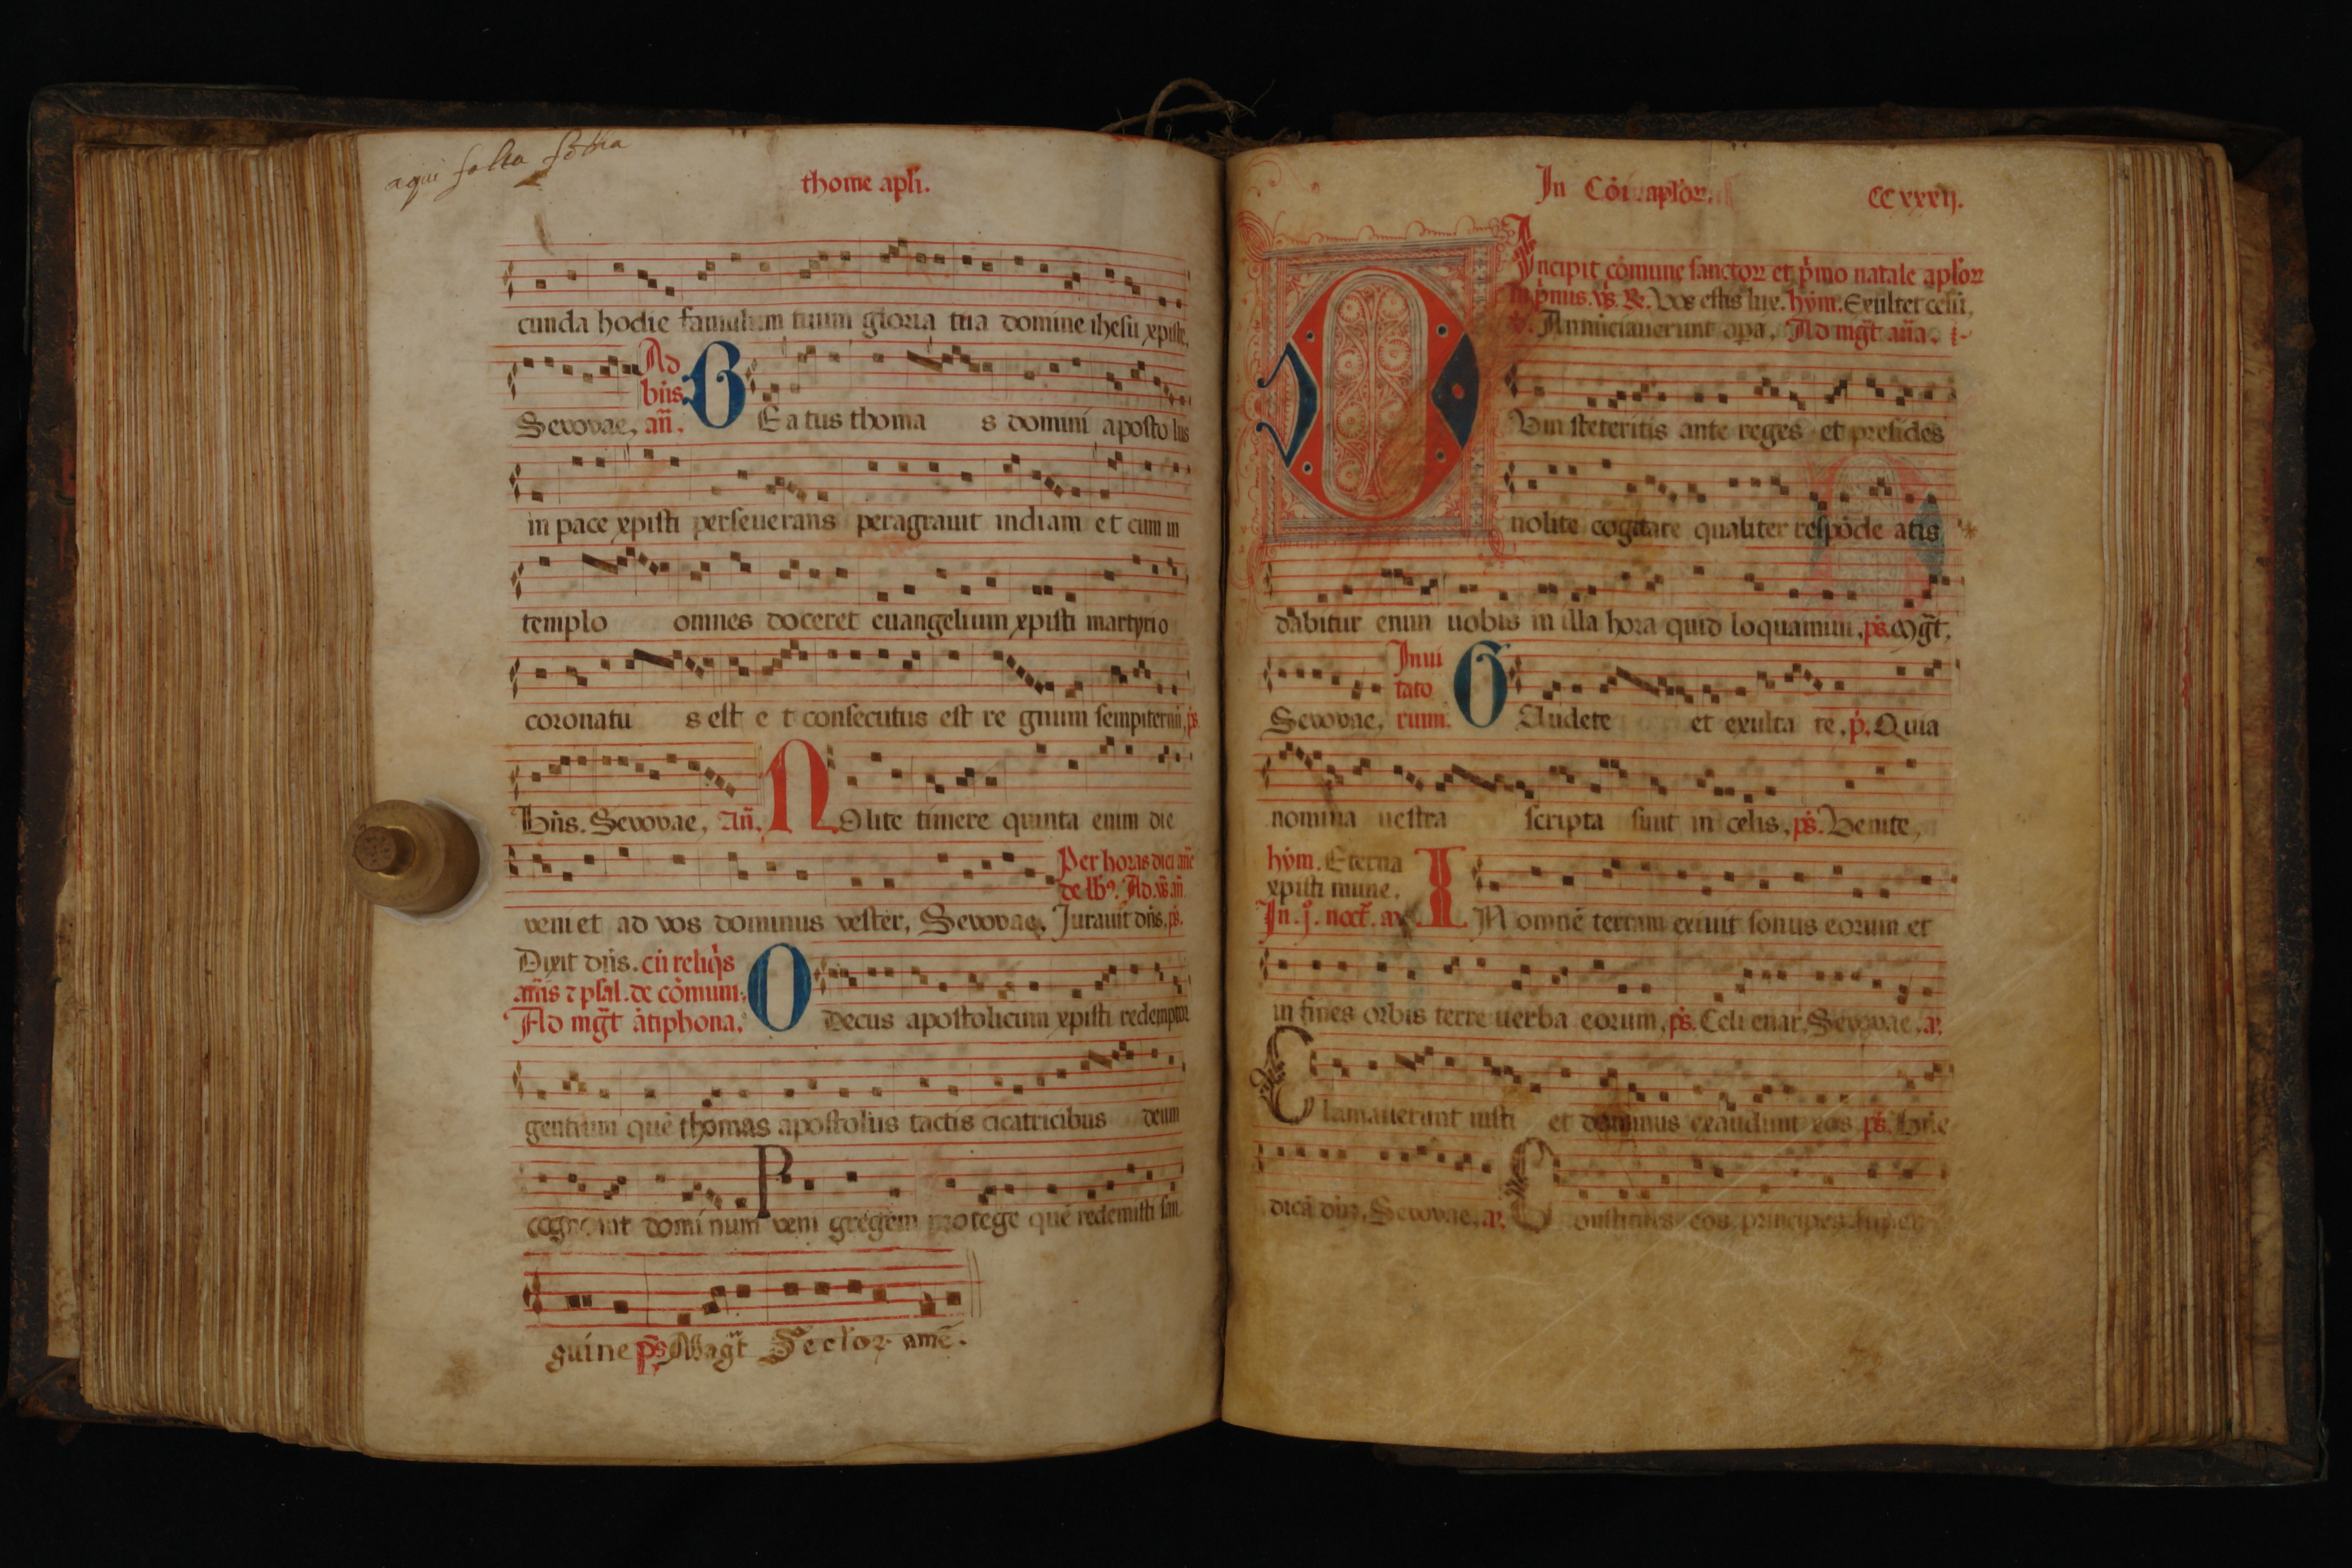 aqui falta
thome apli.
cunda hodie famulum tuum gloria tua domine ihesu xpiste,
Sevovae, Ad bñs. añ. BEatus thoma s domini apostolus
in pace xpisti perseuerans peragrauit indiam et cum in
templo omnes doceret euangelium xpisti martyrio
coronatu s est e t consecutus est re gnum sempiternũ, ps
Bñs. Sevovae, Añ. NOlite timere quinta enim die
veniet ad vos dominus vester, Sevovae, Per horas
Jurauit dñs, ps.
Dixit dñs. cũ reliqs
añis ⁊ psal. de cõmuni.
Ad mgt ãtiphona.
O Decus apostolicum xpisti redemptor
gentium quẽ thomas apostolus tactis cicatricibus deum
cognouit dominum veni gregem protege quẽ redemisti san
guine ps Magt Seclor. amẽ.
In Cõi. aplor.
CCxxxij.
Incipit cõmune sanctoꝝ et pmo natale aploꝝ
Vos estis lux. hym. Exultet celũ,
Annũciauerunt opa, Ad mgt aña.
Dum steteritis ante reges et presides
nolite cogitare qualiter respõde atis
dabitur enim uobis in illa hora quid loquamini, ps. Mgt,
Sevovae, Inui tato rium. GAudete et exulta te, p. Quia
nomina uestra scripta sunt in celis, ps. Venite,
hym. Eterna
xpisti mune.
In. j. noct. a
IN omnẽ terram exiuit sonus eorum et
in fines orbis terre uerba eorum, ps. Celi enar, Sevovae, a.
Clamauerunt iusti et dominus exaudiuit eos ps. Bñe
dicã dño, Sevovae, a. Constitues eos principes super